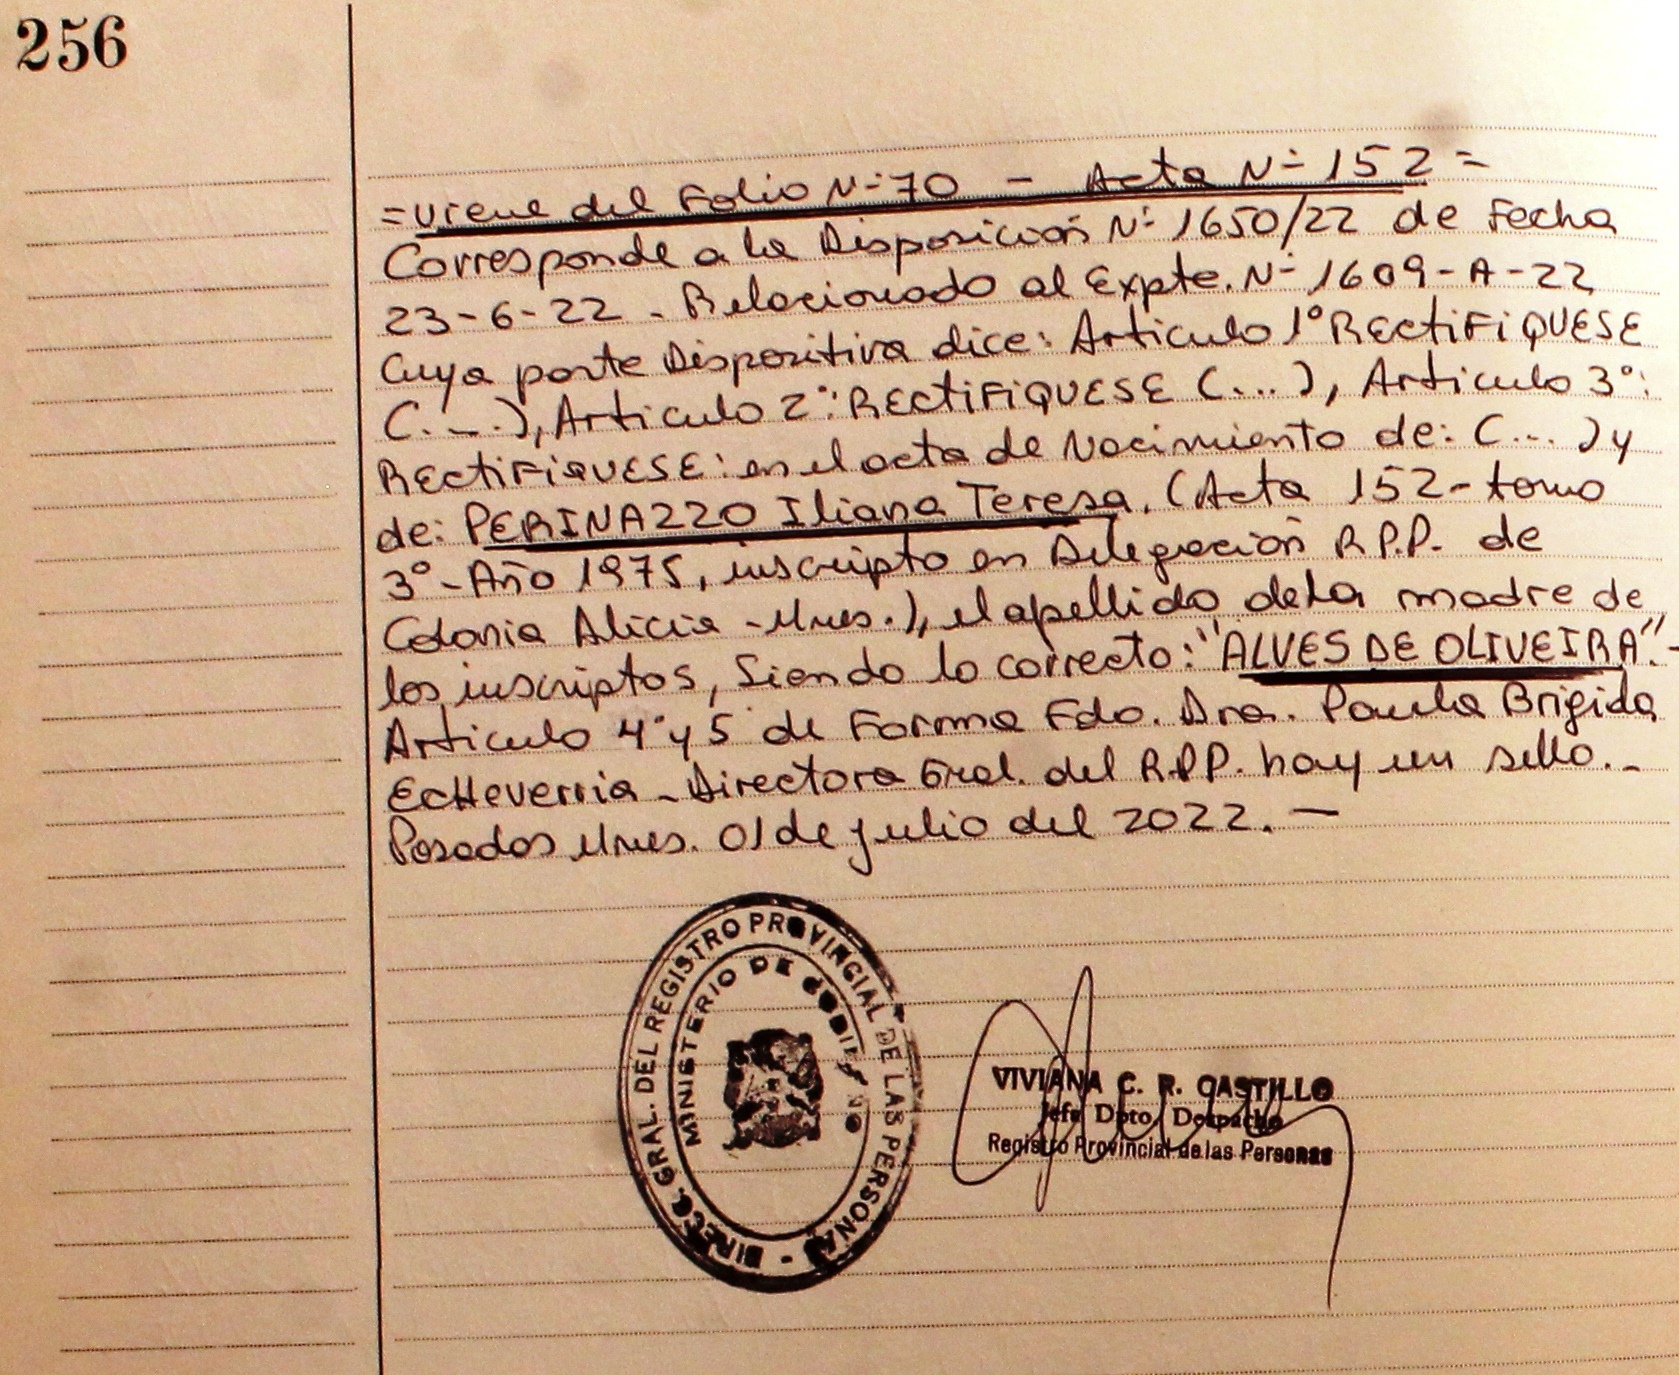 256
=Viene del Folio N-70 - Acta N- 152=
Corresponde a la Disposición N- 1650/22 de Fecha
23-6-22 - Relacionado al Expte. N- 1609-A-22
Cuya parte Dispositiva dice: Articulo 1° RECtiFiQUESE
(...), Articulo 2°: RECtiFiQUESE (...), Articulo 3°:
RECtiFiQUESE: en el acta de Nacimiento de: (...) y
de: PERINAZZO Iliana Teresa. (Acta 152- tomo
3°- Año 1975, inscripto en Delegación R.P.P. de
Colonia Alicia - Mnes.), el apellido de la madre de
los inscriptos, Siendo lo correcto: "ALVES DE OLIVEIRA".-
Articulo 4° y 5° de Forma Fdo. Dra. Paula Brigida
EcHeverria - Directora Gral. del R.P.P. hay un sello.-
Posadas Mnes. 01 de julio del 2022. -
DIRECC. GRAL. DEL REGISTRO PROVINCIAL DE LAS PERSONAS -
MINISTERIO DE GOBIERNO
VIVIANA C. R. CASTILLO
Jefe Dpto. Despacho
Registro Provincial de las Personas